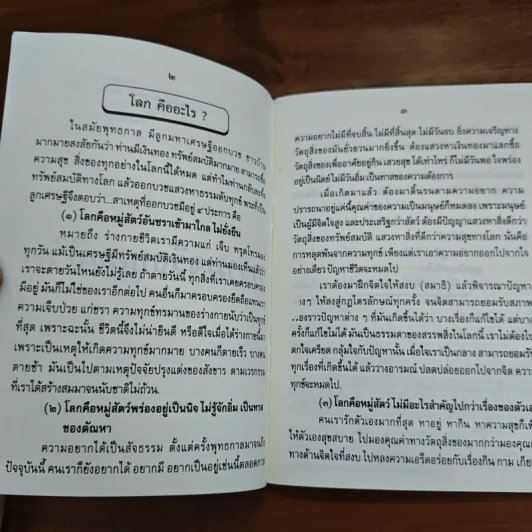 ๒
โลก คืออะไร ?
ในสมัยพุทธกาล มีลูกมหาเศรษฐีออกบวช ชาวบ้าน
มากมายสงสัยกันว่า ท่านมีเงินทอง ทรัพย์สมบัติมากมาย สามารถซื้อ
ความสุข สิ่งของทุกอย่างในโลกนี้ได้หมด แต่ทำไมท่านกลับสละทิ้ง
ทรัพย์สมบัติทางโลก แล้วออกบวชแสวงหาธรรมดับทุกข์ พระที่เป็น
ลูกเศรษฐีจึงตอบว่า...สาเหตุที่ออกบวชมีอยู่ ๔ ประการ คือ
(๑) โลกคือหมู่สัตว์อันชราเข้ามาใกล้ ไม่ยั่งยืน
หมายถึง ร่างกายชีวิตเรามีความแก่ เจ็บ ทรุดโทรมลง
ทุกวัน แม้เป็นเศรษฐีมีทรัพย์สมบัติเงินทอง แต่ท่านมองเห็นแล้วว่า
เราจะตายวันไหนยังไม่รู้เลย ถ้าตายวันนี้ ทุกสิ่งที่เราเคยครอบครอง
มีอยู่ มันก็ไม่ใช่ของเราอีกต่อไป คนอื่นก็มาครอบครองยึดถือแทน
ความเจ็บป่วย แก่ชรา ความทุกข์ทรมานของร่างกายนับว่าเป็นทุกข์
ที่สุด เพราะฉะนั้น ชีวิตนี้จึงไม่น่ายินดี หรือดีใจเมื่อได้ร่างกายนี้มา
เพราะเป็นเหตุให้เกิดความทุกข์มากมาย บางคนก็ตายเร็ว บางคน
ตายช้า มันเป็นไปตามเหตุปัจจัยปรุงแต่งของสังขาร ตามเวรกรรม
ที่เราได้สร้างสมมาจนนับชาติไม่ถ้วน.
(๒) โลกคือหมู่สัตว์พร่องอยู่เป็นนิจ ไม่รู้จักอิ่ม เป็นทาส
ของตัณหา
ความอยากได้เป็นสัจธรรม ตั้งแต่ครั้งพุทธกาลมาจนถึง
ปัจจุบันนี้ คนเราก็ยังอยากได้ อยากมี อยากเป็นอยู่เช่นนี้ตลอดกาล
๓
ความอยากไม่มีที่จบสิ้น ไม่มีที่สิ้นสุด ไม่มีวันจบ ยิ่งความเจริญทาง
วัตถุสิ่งของมันยั่วยวนมากยิ่งขึ้น ต้องแสวงหาเงินทองมาแลกซื้อ
วัตถุสิ่งของเพื่ออาศัยอยู่กิน เสวยสุข ได้เท่าไหร่ ก็ไม่มีวันพอ ใจพร่อง
อยู่เป็นนิตย์ ไม่มีวันอิ่ม เป็นทาสของความต้องการ
เมื่อเกิดมาแล้ว ต้องมาดิ้นรนตามความอยาก ความ
ปรารถนาอยู่แค่นี้คุณค่าของความเป็นมนุษย์ก็หมดลง เพราะมนุษย์
เป็นผู้มีจิตใจสูง และประเสริฐกว่าสัตว์ ต้องมีปัญญาแสวงหาสิ่งดีกว่า
วัตถุสิ่งของทรัพย์สมบัติ แสวงหาสิ่งที่ดีกว่าความสุขทางโลก นั่นคือ
การหลุดพ้นจากความทุกข์ เพียงแต่เราเอาความอยากออกไปจากใจ
อย่างเดียว ปัญหาชีวิตจะหมดไป
เราต้องมาฝึกจิตใจให้สงบ (สมาธิ) แล้วพิจารณาปัญหา
ต่างๆ ให้ลงสู่กฎไตรลักษณ์ทุกครั้ง จนจิตสามารถยอมรับสภาพ
ของราวปัญหาต่าง ๆ ที่มันเกิดขึ้นได้ว่า บางเรื่องก็แก้ไขได้ แต่บาง
ครั้งก็แก้ไขไม่ได้ มันเป็นธรรมดาของสรรพสิ่งในโลกนี้ เราไม่ต้องไป
ตกใจเครียด กลุ้มใจกับปัญหานั้น เมื่อใจเราเป็นกลาง สามารถยอมรับ
ที่เกิดขึ้นได้แล้ว วางอารมณ์ ปลดปล่อยออกไปจากจิต ความ
ทุกข์จะหมดไป.
(๓) โลกคือหมู่สัตว์ ไม่มีอะไรสำคัญไปกว่าเรื่องของตัวเอง
คนเรารักตัวเองมากที่สุด หาอยู่ หากิน หาความสุขก็เพื่อ
ให้ตัวเองสุขสบาย ไปมองคุณค่าทางวัตถุสิ่งของมากกว่ามองคุณค่า
ทางด้านจิตใจที่สงบ ไปหลงความเอร็ดอร่อยกับเรื่องกิน กาม เกียรติ